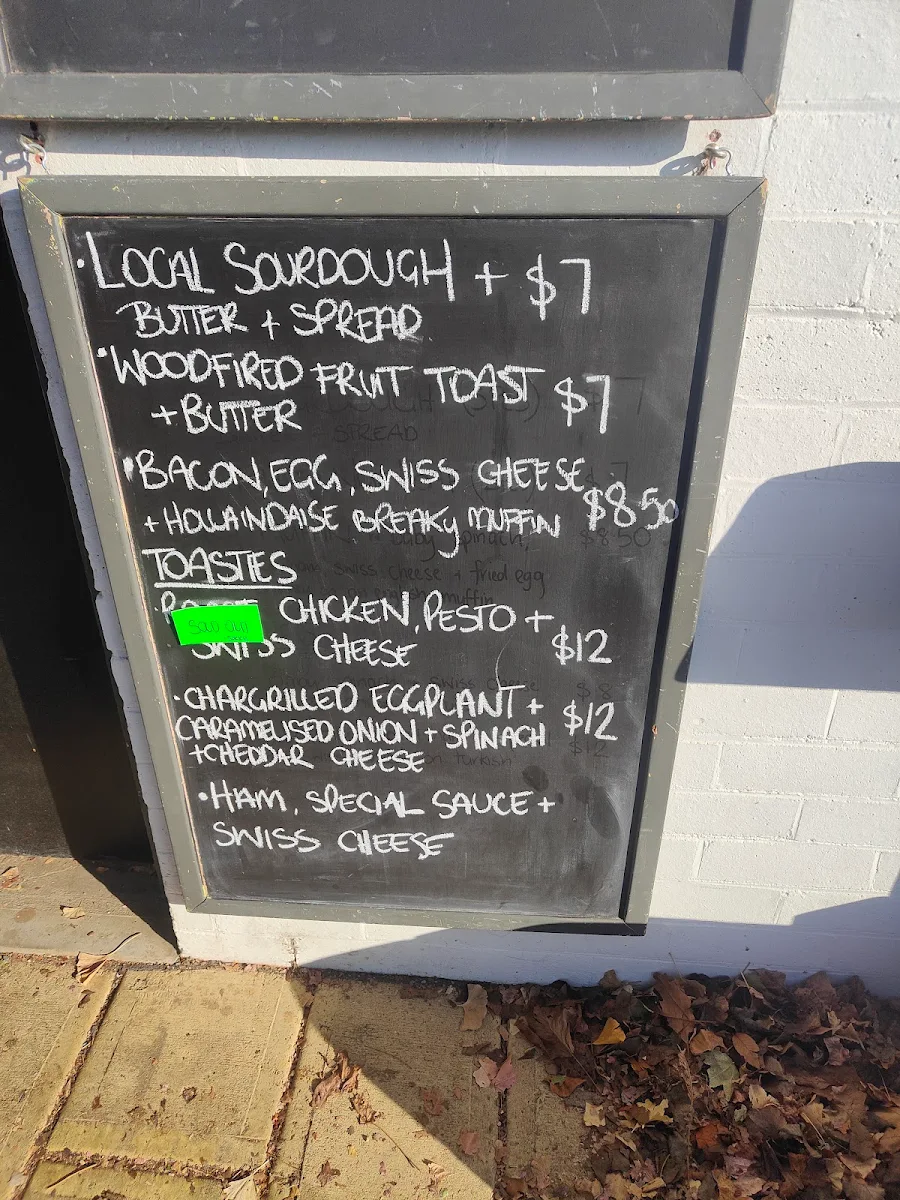 ·LOCAL SOURDOUGH + $7
BUTTER + SPREAD
·WOODFIRED FRUIT TOAST $7
+BUTTER
·BACON, EGG, SWISS CHEESE
+ HOLLAINDAISE BREAKY MUFFIN $8.50
TOASTIES
CHICKEN, PESTO +
SOLD OUT
SWISS CHEESE $12
·CHARGRILLED EGGPLANT +
CARAMELISED ONION + SPINACH $12
+CHEDDAR CHEESE
·HAM, SPECIAL SAUCE +
SWISS CHEESE